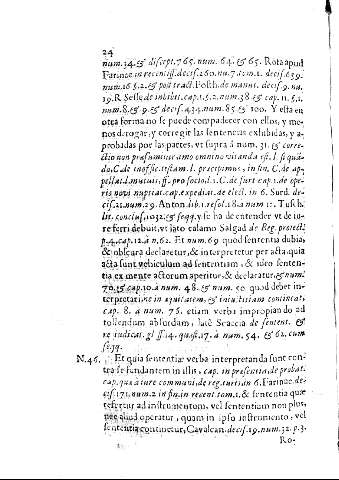 24
num.34.& discept.765. num. 64. & 65. Rota apud
Farinac in recentiss. decis.260. nu.7. tom.1. decis.639.
num.16 5.2. & post tract. Posth. de manut. decis.9. nu.
19. R Sesse de inhibit. cap.1.5.2. num.38 & cap. 11. 5.1.
num.8. & 9. & decis.434. num. 85 & 100. Y esta en
otra forma no se puede compadecer con ellos, y me-
nos derogar, y corregir las sentencias exhibidas, y a-
probadas por las partes, vt supra à num. 31. & corre-
ctio non præsumitur, imo omnino vitanda est. l. si quā-
do, C. de inoffic. testam. l. præcipimus, in fin. C. de ap-
pellat. l. mutuis, ff. pro socio l. 1. C. de furt cap. 1. de ope-
ris novi nuntiat. cap. expediat. de elect. in 6. Surd. de-
cis.21. num.29. Anton. lib.1. resol.18. a num 1. Tusch.
lit. conclus. 1032. & seqq. y se ha de entender vt de iu-
re fieri debuit, vt lato calamo Salgad de Reg. protect.
p.4. cap.12. à n.62. Et num.69 quod sententia dubia,
& obscura declaretur, & interpretetur per acta, quia
acta sunt vehiculum ad sententiam, & ideo senten-
tia ex mente actorum aperitur, & declaratur, & num.
70. & cap.10. à num. 48. & num. 50 quod debet in-
terpretari, ne in iquitatem, & iniustitiam contineat,
cap. 8. à num. 76. etiam verba impropiando ad
tollendum absurdum, latè Scaccia de sentent. &
re iudicat. gl. ff. 14. quæst. 17. à num. 54. & 62. cum
seqq.
N.46. Et quia sententiæ verba interpretanda sunt con-
tra se fundantem in illis, cap. in præsentia, de probat.
cap. quà à iure communi, de reg. tur. dan 6. Farinac. de-
cis.171. num.2 in pn. in recent. tom.1. & sententia quæ
refertur ad instrumentum, vel sententiam non plus,
nec aliud operatur, quam in ipso instrumento, vel
sententia continetur, Cavalcan. decis.19. num.32. p.3.
Ro-